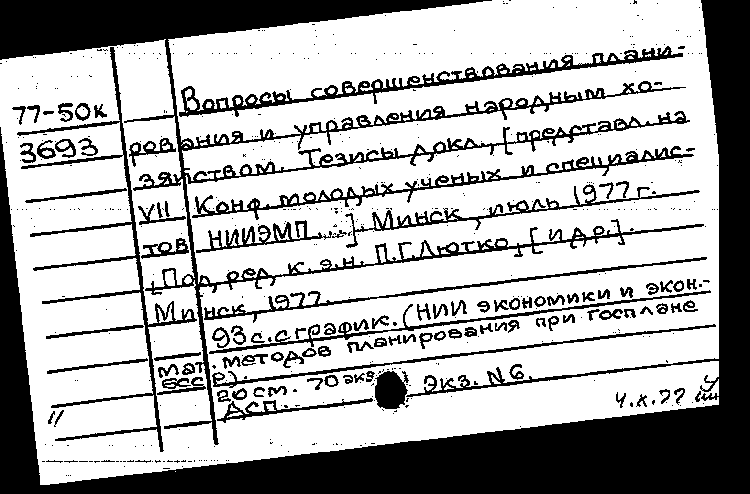 77-50к
3693
Вопросы совершенствования плани-
рования и управления народным хо-
зяйством. Тезисы докл., [представл. на
VII Конф. молодых ученых и специалис-
тов НИИЭМП...]. Минск, июль 1977 г.
Под ред. к.э.н. П.Г.Лютко, [и др.].
Минск, 1977.
93 с. с график. (НИИ экономики и экон.-
мат. методов планирования при Госплане
БССР).
20 см. 70 экз. Экз. N 6.
ДСП.
11
4.X.77